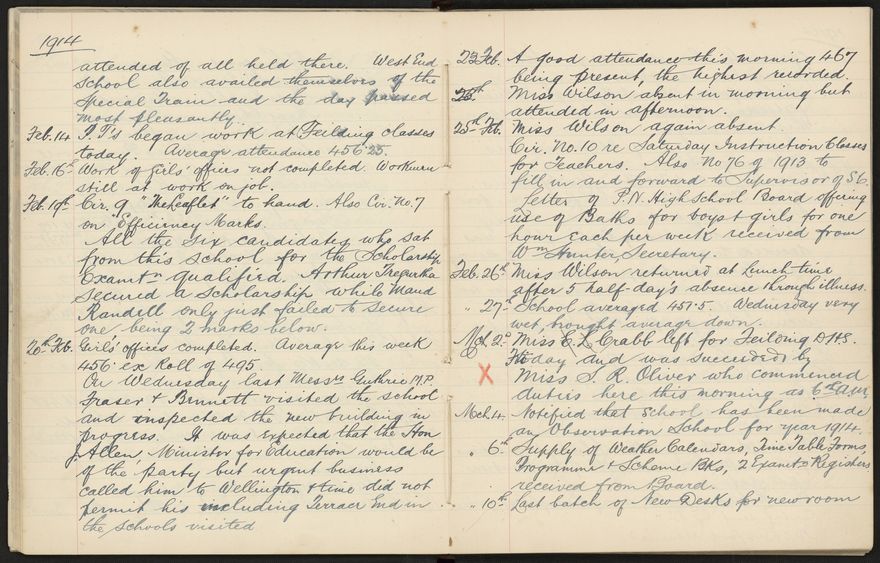 1914
attended of all held there. West End
School also availed themselves of the
Special Train and the day passed
most pleasantly.
Feb. 14 P.T's began work at Feilding classes
today. Average attendance 456.25.
Feb. 16th Work of Girls' offices not completed. Workmen
still at work on job.
Feb. 19th Cir. 9 "The Leaflet" to hand. Also Cir. No. 7
on Efficiency Marks.
All the six candidates who sat
from this School for the Scholarship
Examtn qualified. Arthur Tregurtha
secured a scholarship while Maud
Randell only just failed to secure
one being 2 marks below.
20th Feb. Girls' offices completed. Average this week
456 ex Roll of 495
On Wednesday last Messrs Guthrie M.P.
Fraser & Bennett visited the school
and inspected the new building in
progress. It was expected that the Hon
J. Allen, Minister for Education would be
of the party but urgent business
called him to Wellington & time did not
permit his including Terrace End in
the schools visited
23 Feb. A good attendance this morning 467
being present, the highest recorded.
Miss Wilson absent in morning but
attended in afternoon.
25th Feb. Miss Wilson again absent.
Cir. No. 10 re Saturday Instruction Classes
for Teachers. Also No 76 of 1913 to
fill in and forward to Supervisor of S.C.
Letter of P.N. High School Board offering
use of Baths for boys & girls for one
hour each per week received from
Wm Hunter, Secretary.
Feb. 26th Miss Wilson returned at lunch time
after 5 half-day's absence through illness.
" 27th School averaged 457.5. Wednesday very
wet, brought average down.
Mch 2. Miss E. L. Crabb left for Feilding D.H.S.
today and was succeeded by
X Miss S. R. Oliver who commenced
duties here this morning as 6th Asst.
Mch 4. Notified that School has been made
an Observation School for year 1914.
" 6th Supply of Weather Calendars, Time Table Forms,
Programme & Scheme Bks, 2 Examtn Registers
received from Board.
" 10th Last batch of New Desks for new room